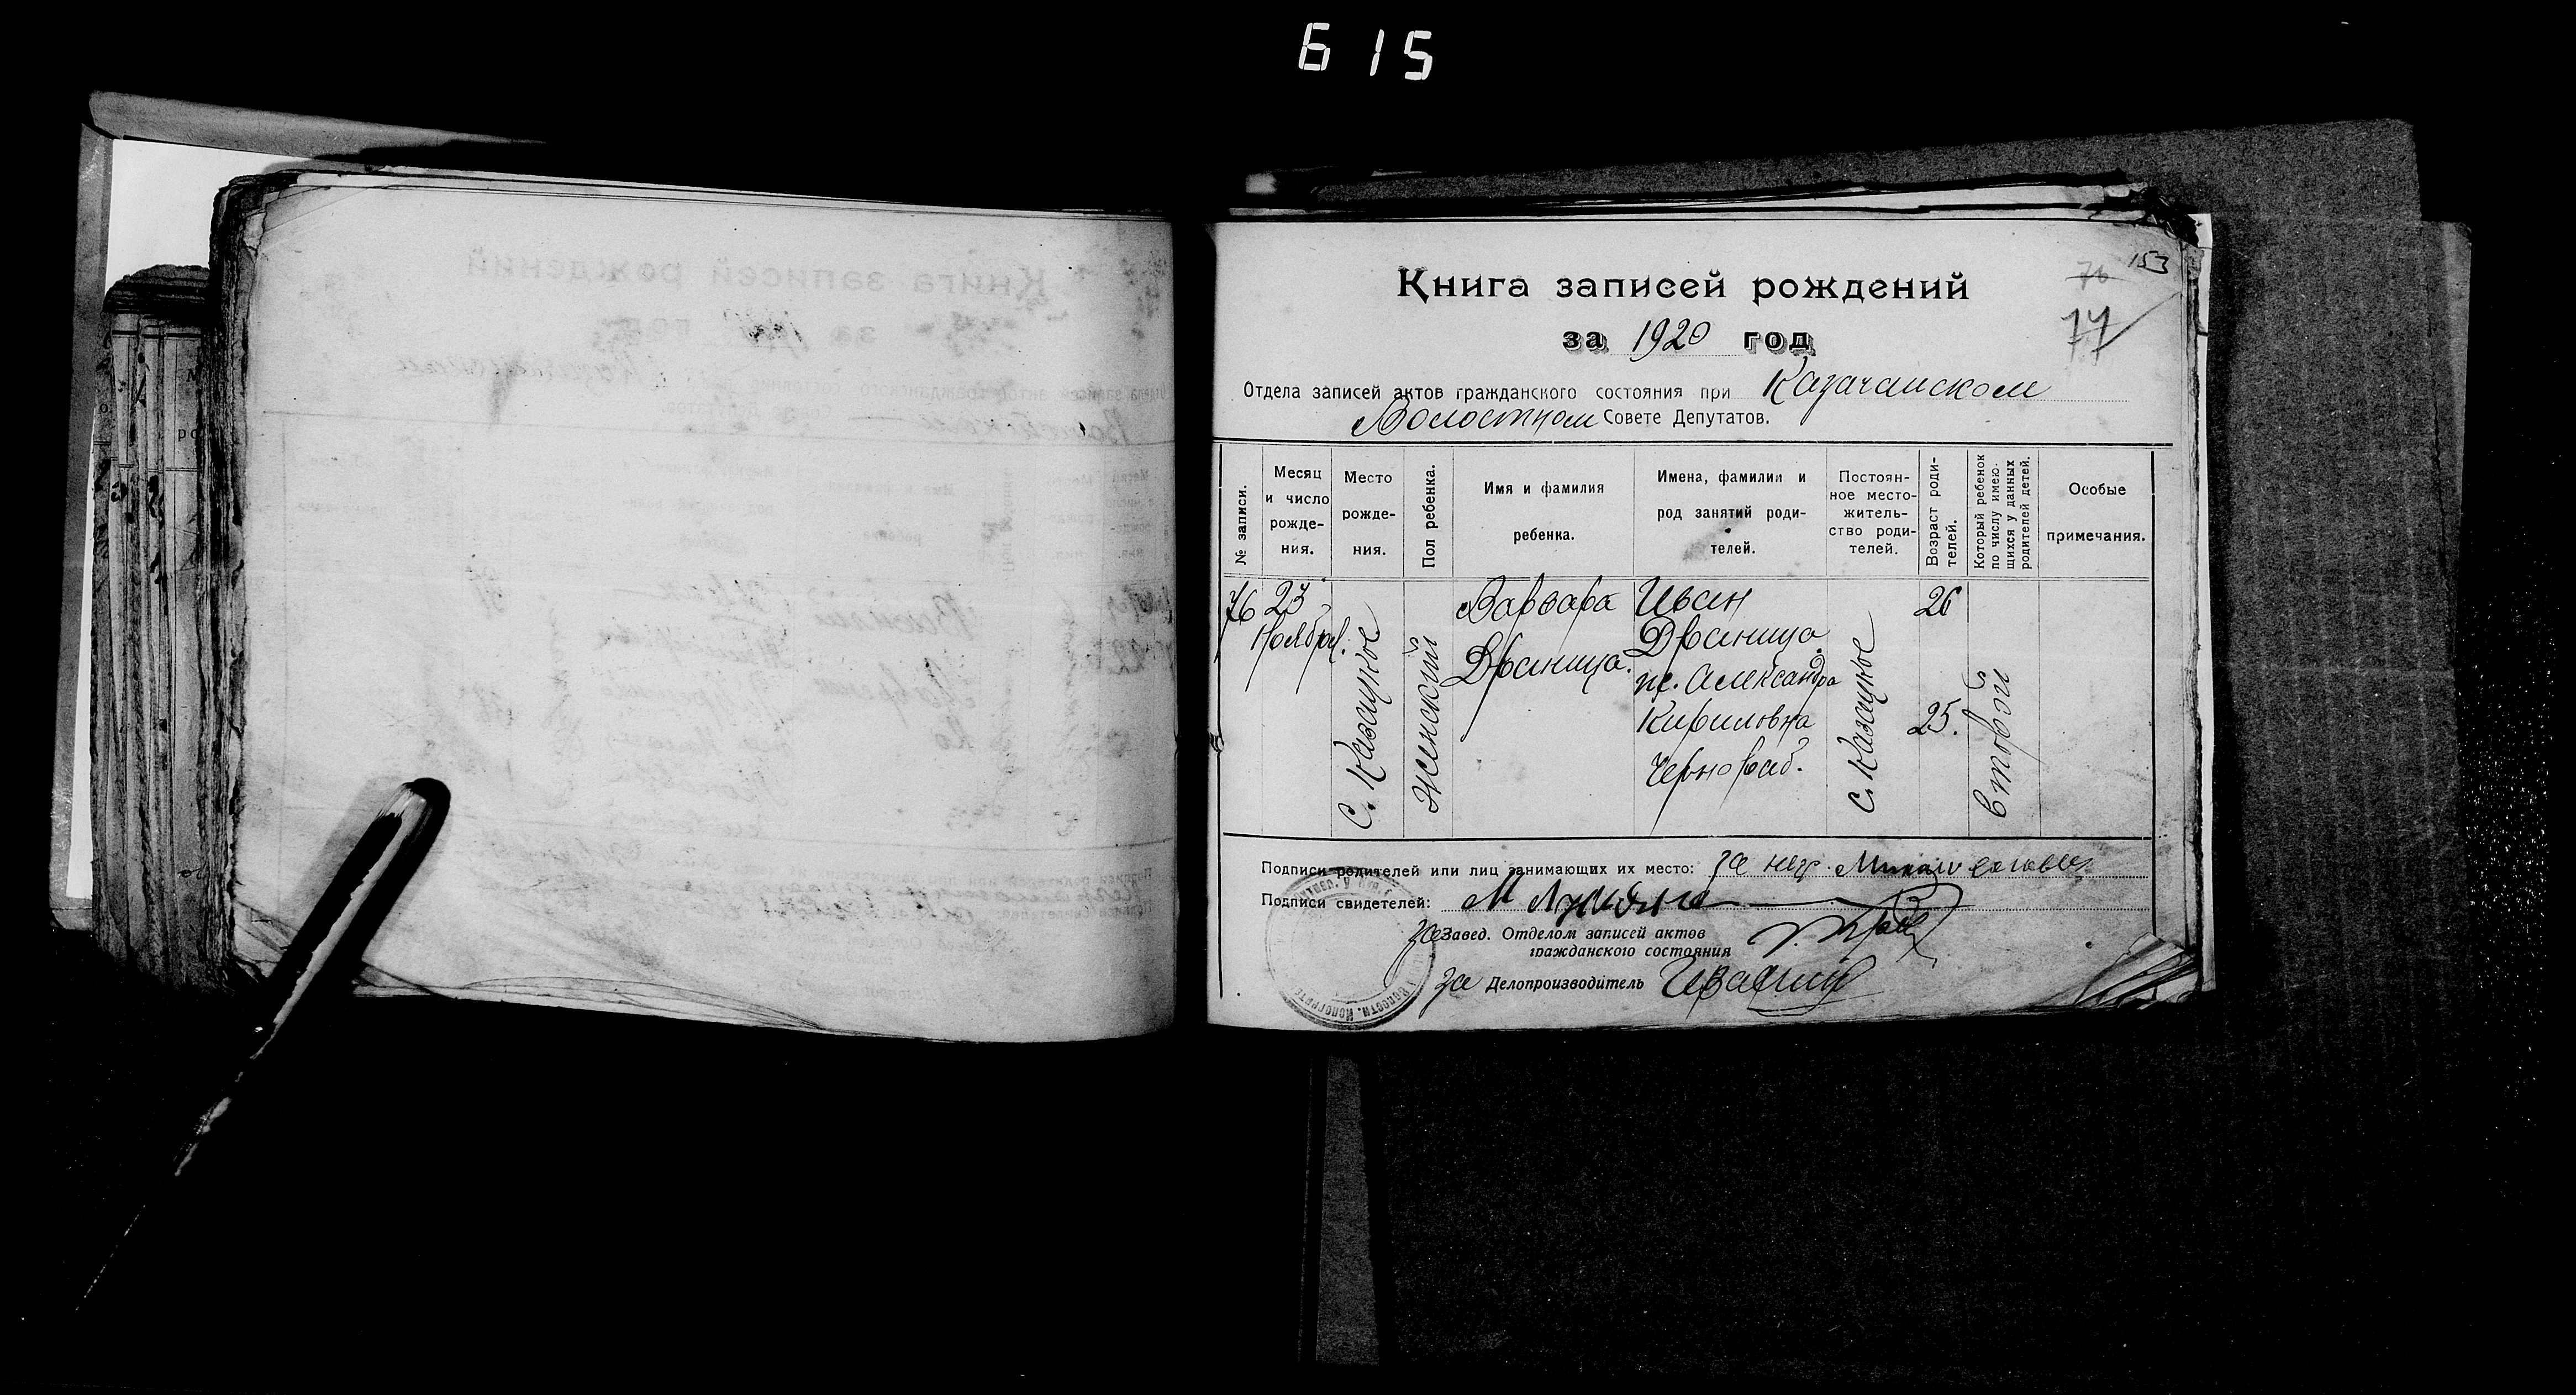 615
153
76
77
Книга записей рождений
за 1920 год
Отдела записей актов гражданского состояния при Казачанском
Волостном Совете Депутатов.
№ записи.
Месяц и число рожде- ния.
Место рожде- ния.
Пол ребенка.
Имя и фамилия ребенка.
Имена, фамилии и род занятий роди- телей.
Постоян- ное место- житель- ство роди- телей.
Возраст роди- телей.
Который ребенок по числу имею- щихся у данных родителей детей.
Особые примечания.
76
23
Ноября.
с. Казацкое
Женский
Варвара
Дваница.
Иван
Дваница
Александра
Кириловна
Чернораб.
с. Казацкое
26
25.
второй
Подписи родителей или лиц занимающих их место: за нег.
Подписи свидетелей: М
за Завед. Отделом записей актов
гражданского состояния
за Делопроизводитель